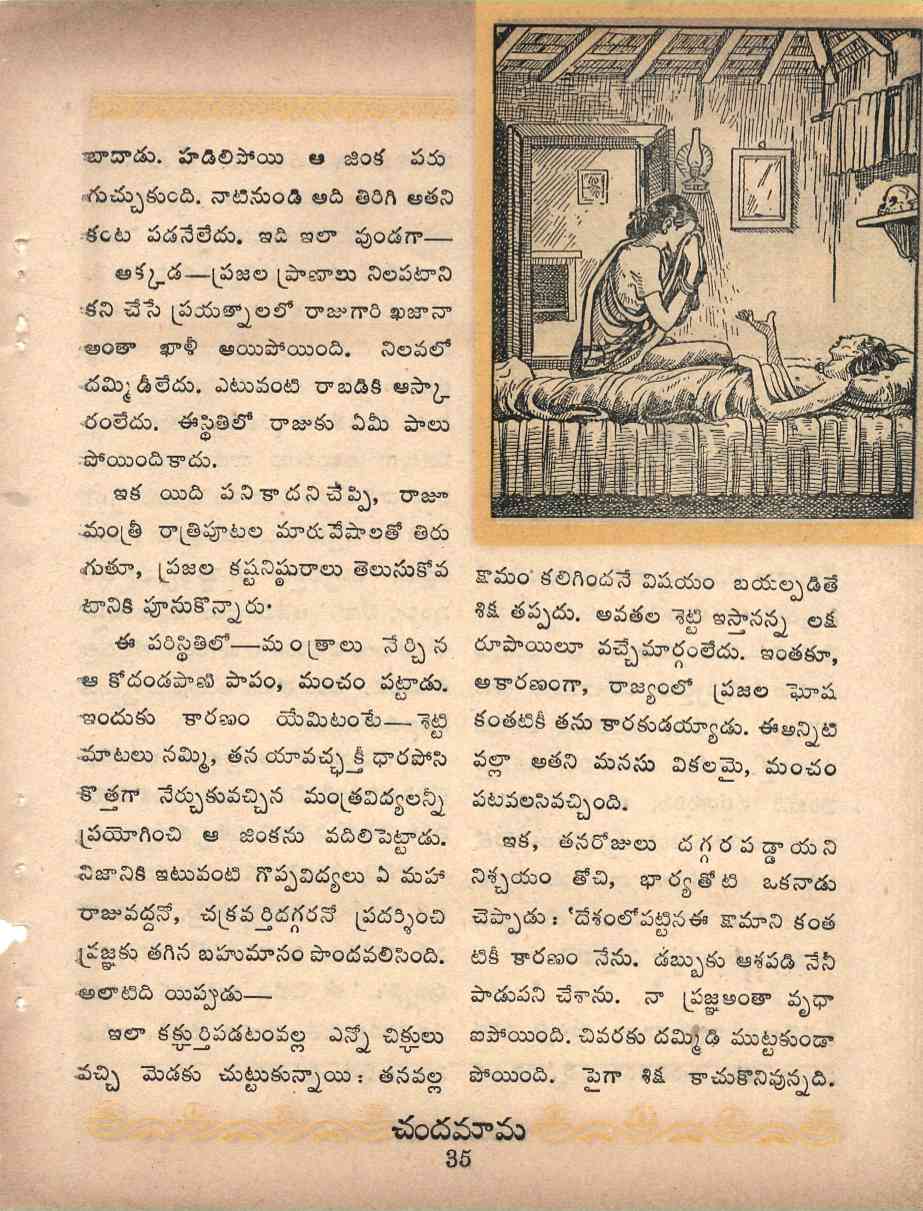 బాదాడు. హడిలిపోయి ఆ జింక పరు
గుచ్చుకుంది. నాటినుండి అది తిరిగి అతని
కంట పడనేలేదు. ఇది ఇలా వుండగా—
అక్కడ—ప్రజల ప్రాణాలు నిలపటాని
కని చేసే ప్రయత్నాలలో రాజుగారి ఖజానా
అంతా ఖాళీ అయిపోయింది. నిలవలో
దమ్మిడీలేదు. ఎటువంటి రాబడికి ఆస్కా
రంలేదు. ఈస్థితిలో రాజుకు ఏమీ పాలు
పోయిందికాదు.
ఇక యిది పనికాదనిచెప్పి, రాజూ
మంత్రీ రాత్రిపూటల మారువేషాలతో తిరు
గుతూ, ప్రజల కష్టనిష్ఠురాలు తెలుసుకోవ
టానికి పూనుకొన్నారు.
ఈ పరిస్థితిలో—మంత్రాలు నేర్చిన
ఆ కోదండపాణి పాపం, మంచం పట్టాడు.
ఇందుకు కారణం యేమిటంటే—శెట్టి
మాటలు నమ్మి, తన యావచ్ఛక్తీ ధారపోసి
కొత్తగా నేర్చుకువచ్చిన మంత్రవిద్యలన్నీ
ప్రయోగించి ఆ జింకను వదిలిపెట్టాడు.
నిజానికి ఇటువంటి గొప్పవిద్యలు ఏ మహా
రాజువద్దనో, చక్రవర్తిదగ్గరనో ప్రదర్శించి
ప్రజ్ఞకు తగిన బహుమానం పొందవలిసింది.
అలాటిది యిప్పుడు—
ఇలా కక్కుర్తిపడటంవల్ల ఎన్నో చిక్కులు
వచ్చి మెడకు చుట్టుకున్నాయి: తనవల్ల
కామం కలిగిందనే విషయం బయల్పడితే
శిక్ష తప్పదు. అవతల శెట్టి ఇస్తానన్న లక్ష
రూపాయిలూ వచ్చేమార్గంలేదు. ఇంతకూ,
అకారణంగా, రాజ్యంలో ప్రజల ఘోష
కంతటికీ తను కారకుడయ్యాడు. ఈఅన్నిటి
వల్లా అతని మనసు వికలమై, మంచం
పటవలసివచ్చింది.
ఇక, తనరోజులు దగ్గరపడ్డాయని
నిశ్చయం తోచి, భార్యతోటి ఒకనాడు
చెప్పాడు: 'దేశంలోపట్టినఈ కామాని కంత
టికీ కారణం నేను. డబ్బుకు ఆశపడి నేనీ
పాడుపని చేశాను. నా ప్రజ్ఞఅంతా వృథా
ఐపోయింది. చివరకు దమ్మిడి ముట్టకుండా
పోయింది. పైగా శిక్ష కాచుకొనివున్నది.
చందమామ
35